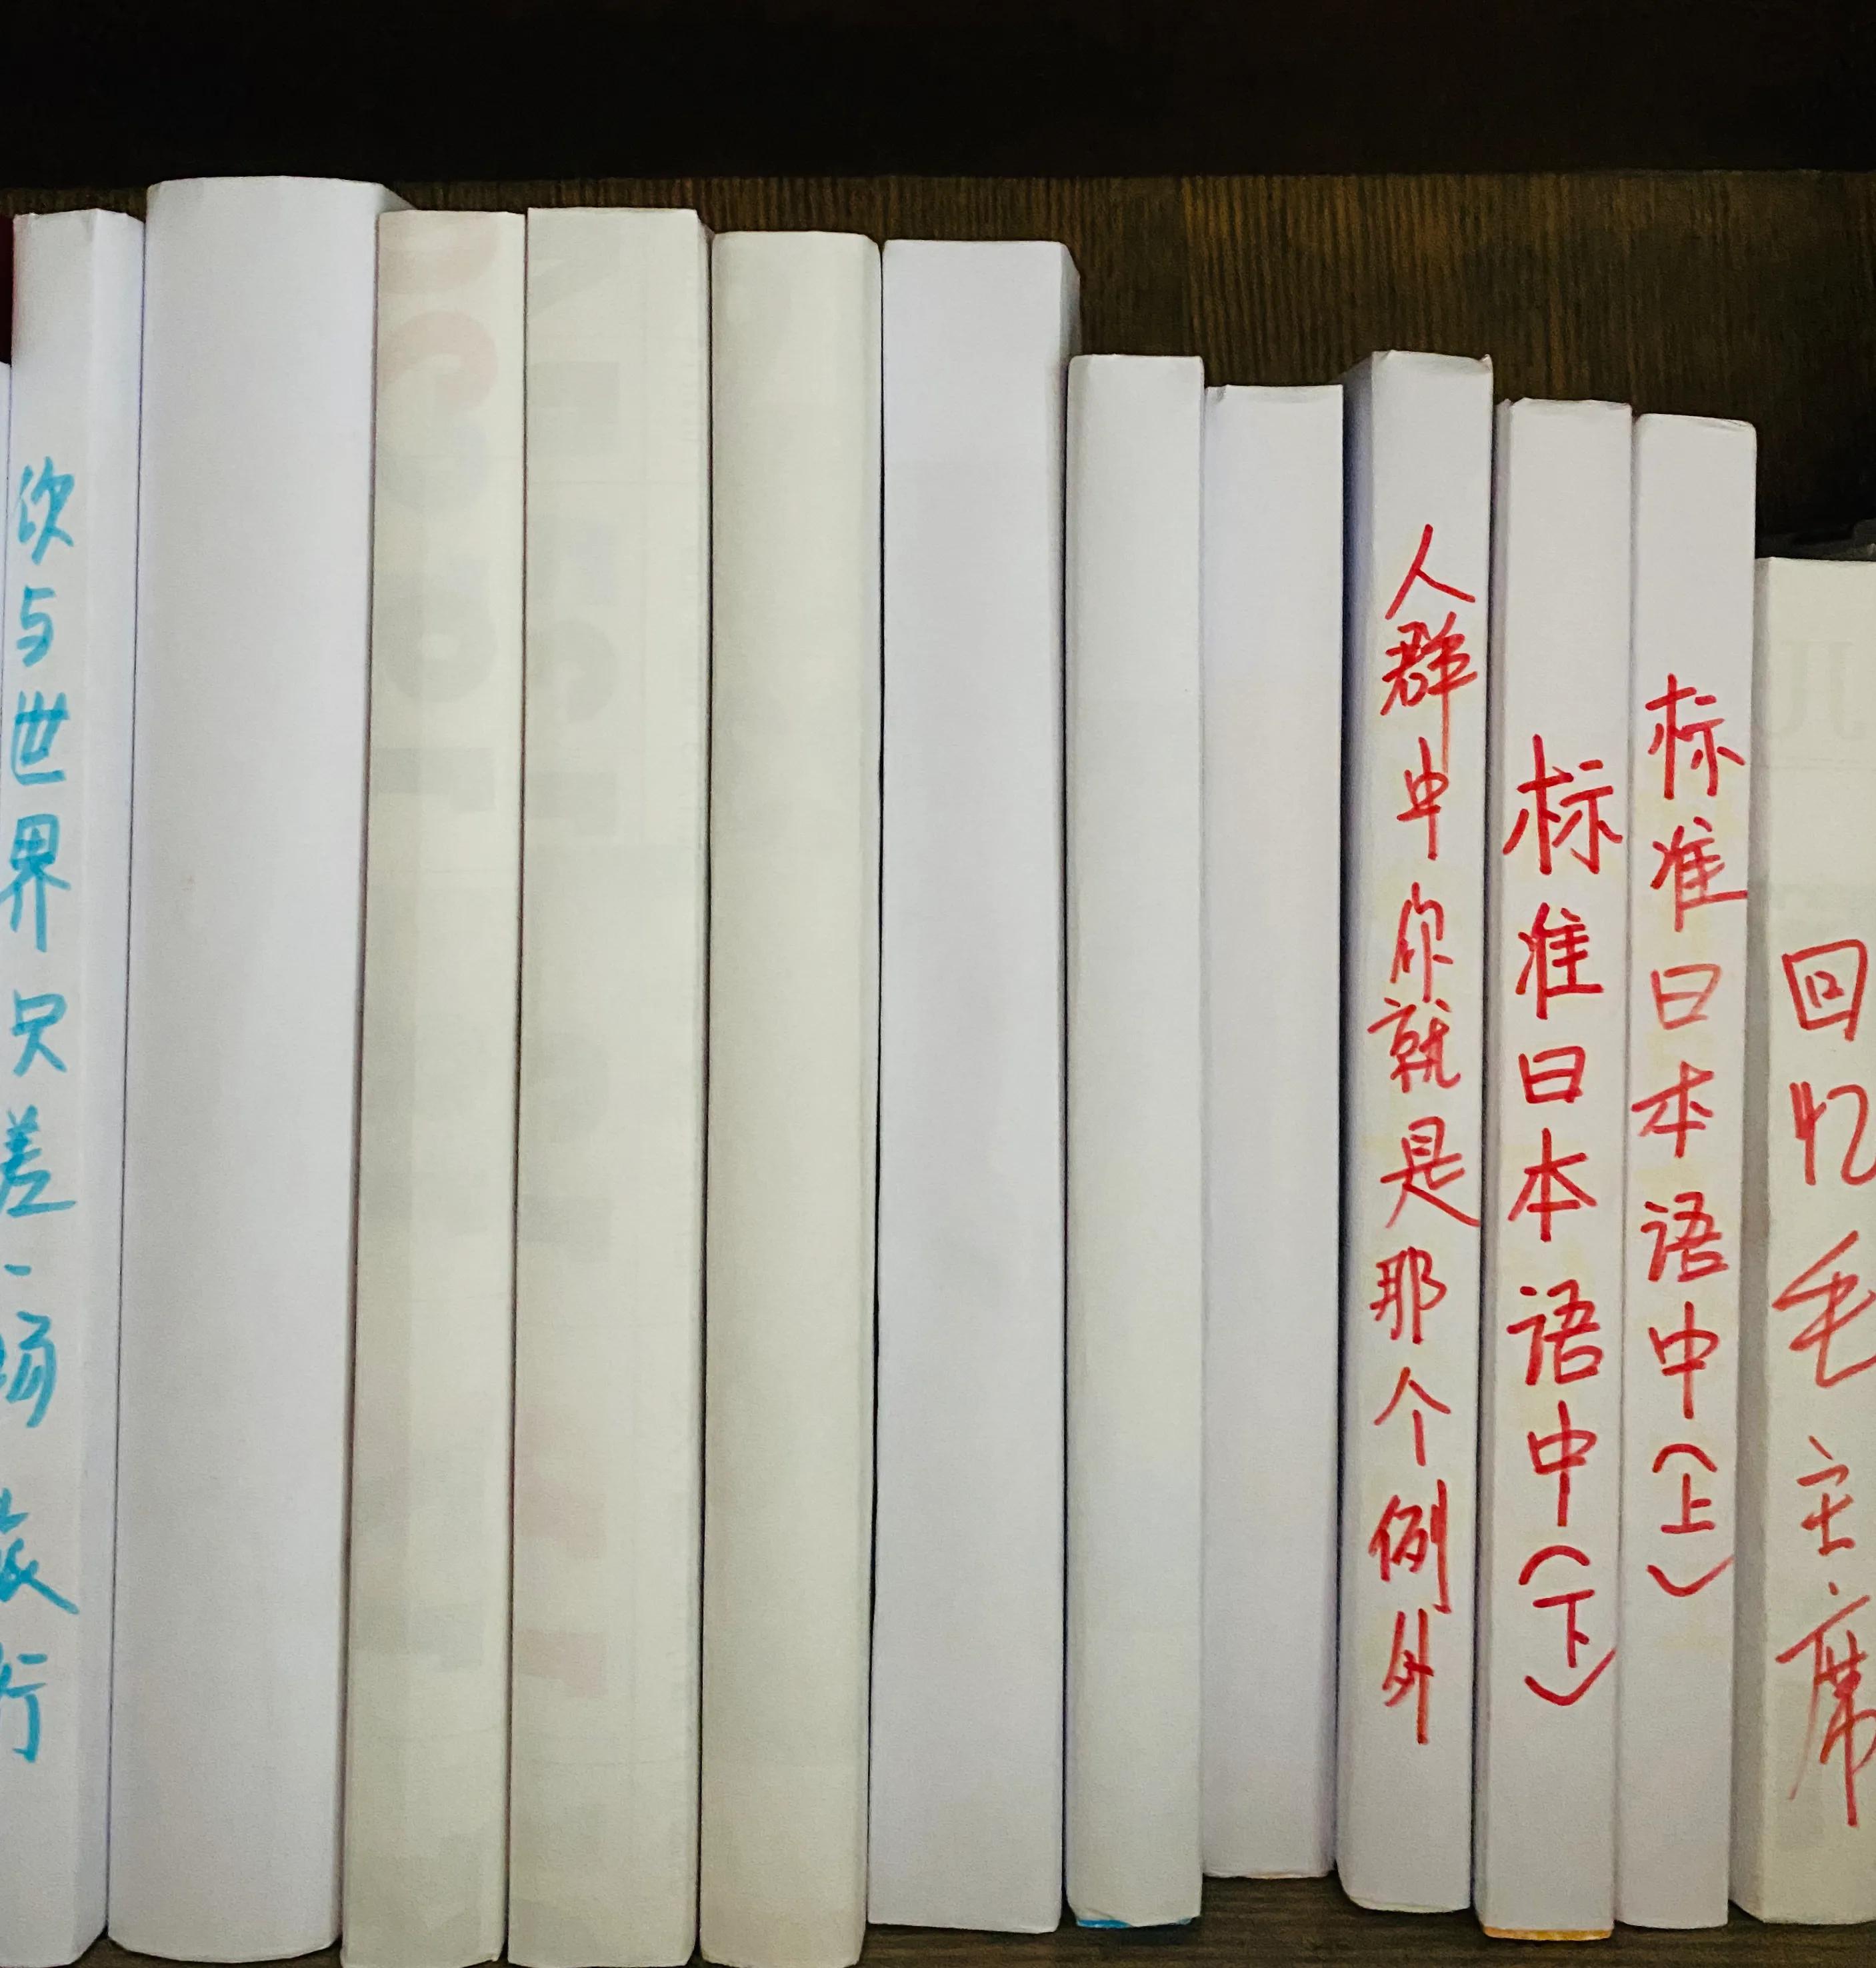 你与世界只差一场旅行
人群中你就是那个例外
标准日本语中(下)
标准日本语中(上)
回忆毛主席